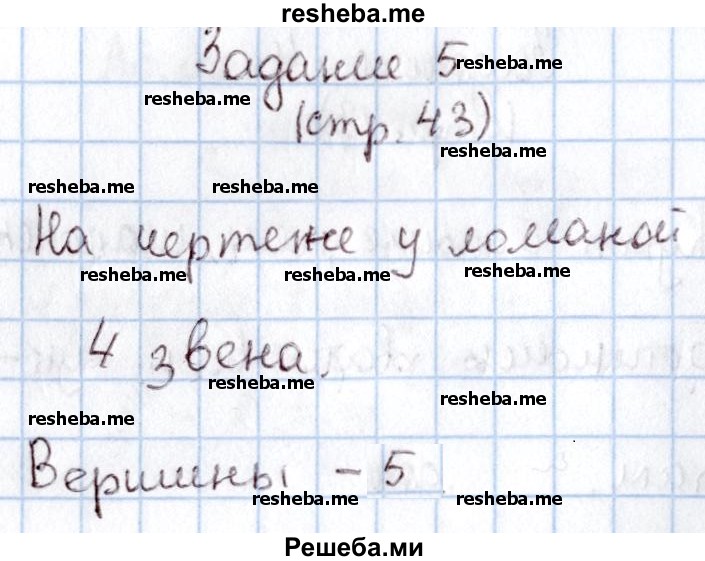 resheba.me
Задание 5
resheba.me
resheba.me
(стр. 43)
resheba.me
resheba.me resheba.me
На чертеже у ломаной
resheba.me resheba.me resheba.me
4 звена.
resheba.me
resheba.me
resheba.me
Вершины - 5
resheba.me resheba.me
Решеба.ми